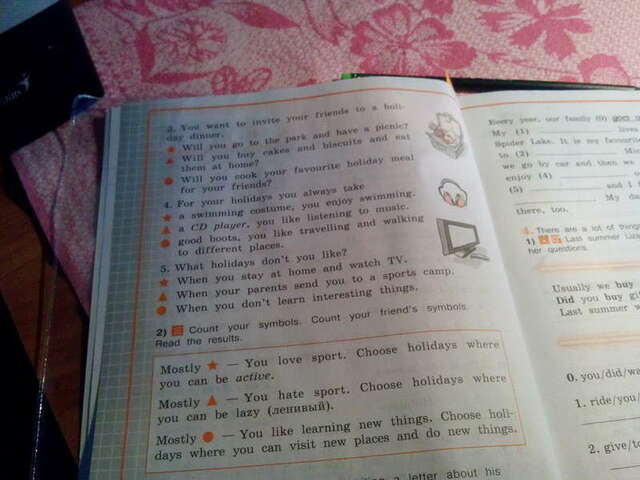 3. You want to invite your friends to a holi-
day dinner.
★ Will you go to the park and have a picnic?
▲ Will you buy cakes and biscuits and eat
them at home?
● Will you cook your favourite holiday meal
for your friends?
4. For your holidays you always take
★ a swimming costume, you enjoy swimming.
▲ a CD player, you like listening to music.
● good boots, you like travelling and walking
to different places.
5. What holidays don't you like?
★ When you stay at home and watch TV.
▲ When your parents send you to a sports camp.
● When you don't learn interesting things.
2) Count your symbols. Count your friend's symbols.
Read the results.
Mostly ★ — You love sport. Choose holidays where
you can be active.
Mostly ▲ — You hate sport. Choose holidays where
you can be lazy (ленивый).
Mostly ● — You like learning new things. Choose holi-
days where you can visit new places and do new things.
a letter about his
Every year, our family (0)
My (1) lives
Spider Lake. It is my favourite
to (2)
we go by car and then we
enjoy (4)
(5) and I
My da
there, too.
4. There are a lot of things
1) Last summer
her questions.
Usually we buy
Did you buy
Last summer
0. you/did/we
1. ride/you/
2. give/to